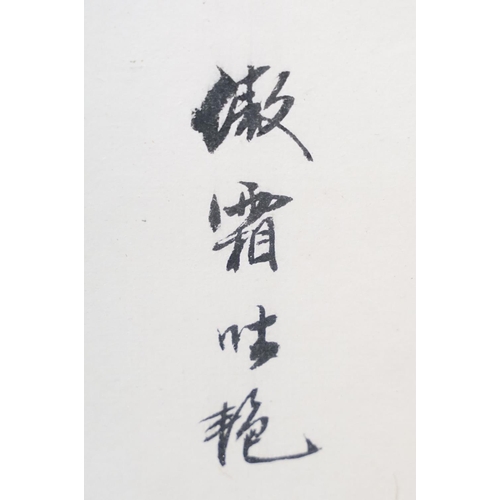 傲霜吐艳